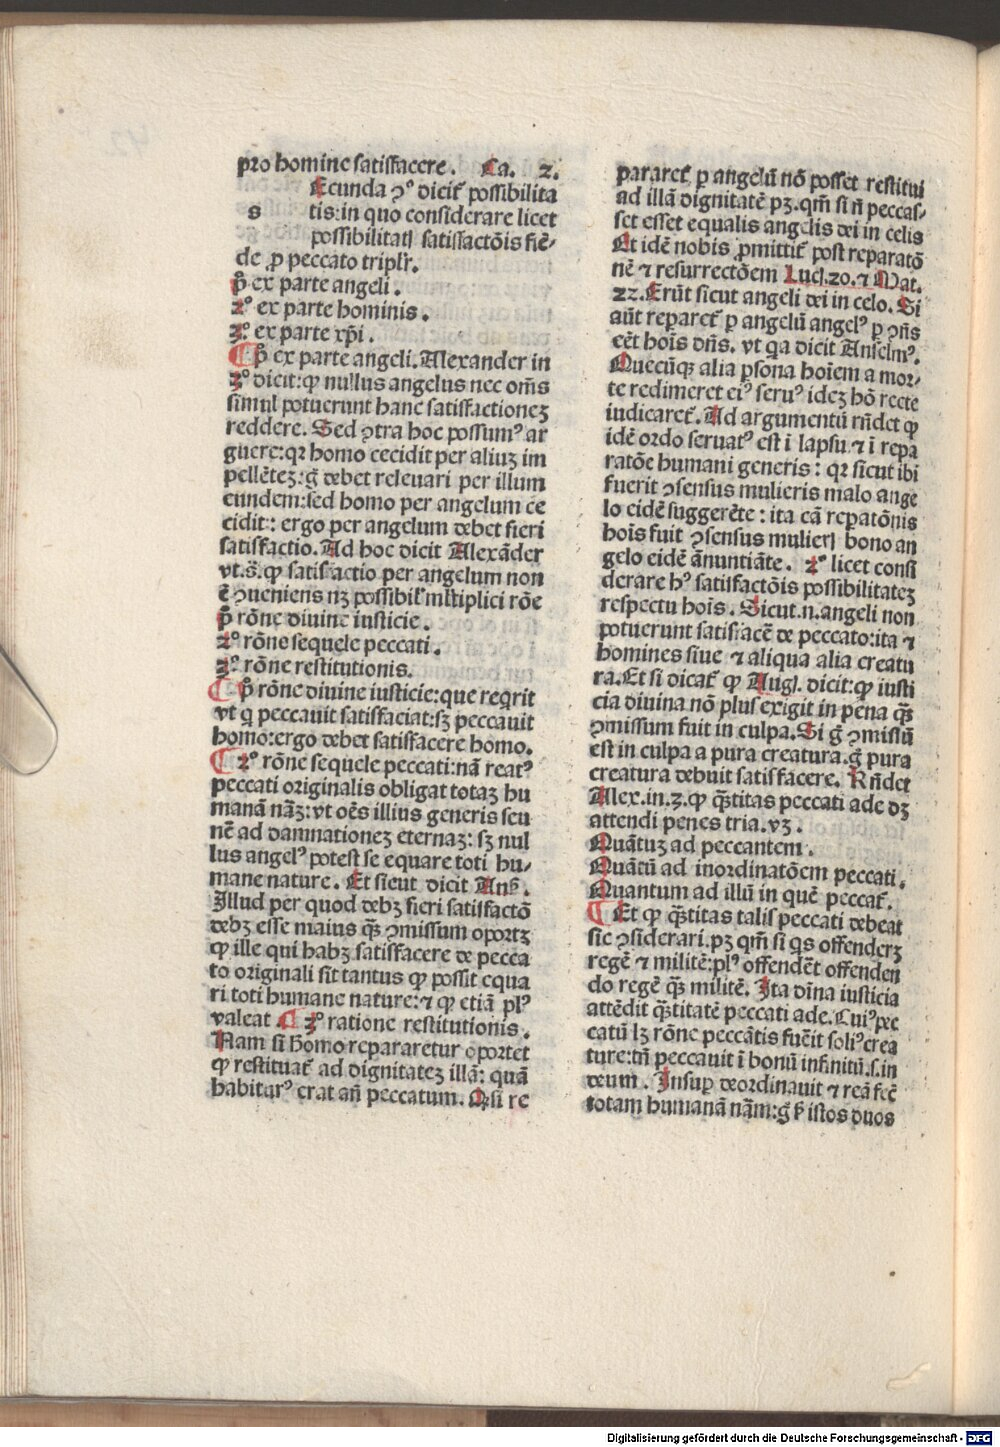 pro homine satisfacere. Ca. 2.
Ecunda ɔͦ dicit᷑ possibilita
s tis: in quo considerare licet
possibilitatꝭ satisfactōis fiē⸗
de ꝓ peccato triplr̄.
p̊ ex parte angeli.
2ͦ ex parte hominis.
3ͦ ex parte xp̄i.
¶ p̊ ex parte angeli. Alexander in
3ͦ dicit: ꝙ nullus angelus nec om̄s
simul potuerunt hanc satisfactionez
reddere. Sed ꝯtra hoc possumꝰ ar
guere: qꝛ homo cecidit per aliuz im
pellētez: g̊ debet releuari per illum
eundem: sed homo per angelum ce
cidit: ergo per angelum debet fieri
satisfactio. Ad hoc dicit Alexāder
vt.s̄. ꝙ satisfactio per angelum non
ē ꝯueniens nꝫ possibil̛ mltiplici rōe
p̊ rōne diuine iusticie.
2ͦ rōne sequele peccati.
3ͦ rōne restitutionis.
¶ p̊ rōne diuine iusticie: que reqrit
vt q peccauit satisfaciat: sꝫ peccauit
homo: ergo debet satisfacere homo.
¶ 2ͦ rōne sequele peccati: nā reatꝰ
peccati originalis obligat totaz hu
manā nāz: vt oēs illius generis seu
nē ad damnationez eternaz: sꝫ nul
lus angelꝰ potest se equare toti hu⸗
mane nature. Et sicut dicit Ans̄.
Illud per quod debꝫ fieri satisfactō
debꝫ esse maius q̄ꝫ ꝯmissum oportꝫ
ꝙ ille qui habꝫ satisfacere de pecca
to originali sit tantus ꝙ possit equa
ri toti humane nature: ⁊ ꝙ etiā plꝰ
valeat. ¶ 3ͦ ratione restitutionis.
Nam si homo repararetur oportet
ꝙ restituat᷑ ad dignitatez illā: quā
habiturꝰ erat an̄ peccatum. Qꝫ si re
pararet᷑ ꝑ angelū nō posset restitui
ad illā dignitatē pꝫ. qm̄ si n̄ peccas⸗
set esset equalis angelis dei in celis
Et idē nobis ꝓmittit᷑ post reparatō
nē ⁊ resurrectōem Lucꝭ. 20. ⁊ Mat.
22. Erūt sicut angeli dei in celo. Si
aūt reparet᷑ ꝑ angelū angelꝰ ꝑ ꝯn̄s
eēt hoīs dn̄s. vt qa dicit Anselmꝰ.
Quecūqꝫ alia ꝑsona hoīem a mor⸗
te redimeret eiꝰ seruꝰ idez hō recte
iudicaret᷑. Ad argumentū rn̄det ꝙ
idē ordo seruatꝰ est ī lapsu ⁊ ī repa
ratōe humani generis: qꝛ sicut ibi
fuerit ꝯsensus mulieris malo ange
lo eidē suggerēte: ita eā reparatōnis
hoīs fuit ꝯsensus mulierꝭ bono an
gelo eidē ānuntiāte. 2ͦ licet consi
derare hꝰ satisfactōis possibilitatez
respectu hoīs. Sicut .n. angeli non
potuerunt satisfacē de peccato: ita ⁊
homines siue ⁊ aliqua alia creatu
ra. Et si dicat᷑ ꝙ Augꝭ. dicit: ꝙ iusti
cia diuina nō plus exigit in pena q̄ꝫ
ꝯmissum fuit in culpa. Si g̊ ꝯmissū
est in culpa a pura creatura. g̊ pura
creatura debuit satisfacere. Rn̄det
Alex. in. 3. ꝙ q̄titas peccati ade dꝫ
attendi penes tria. vꝫ.
Quātuz ad peccantem.
Quātū ad inordinatōem peccati.
Quantum ad illū in quē peccat᷑.
¶ Et ꝙ q̄titas talis peccati debeat
sic ꝯsiderari. pꝫ qm̄ si qs offenderꝫ
regē ⁊ militē: plꝰ offendēt offenden
do regē q̄ꝫ militē. Ita dīna iusticia
attēdit q̄titatē peccati ade. Cuiꝰ pec
catū lꝫ rōne peccātis fuēit soliꝰ crea
ture: tn̄ peccauit ī bonū infinitū .s. in
deum. Insuꝑ deordinauit ⁊ reā fec̄
totam humanā nām: g̊ ꝑ istos duos